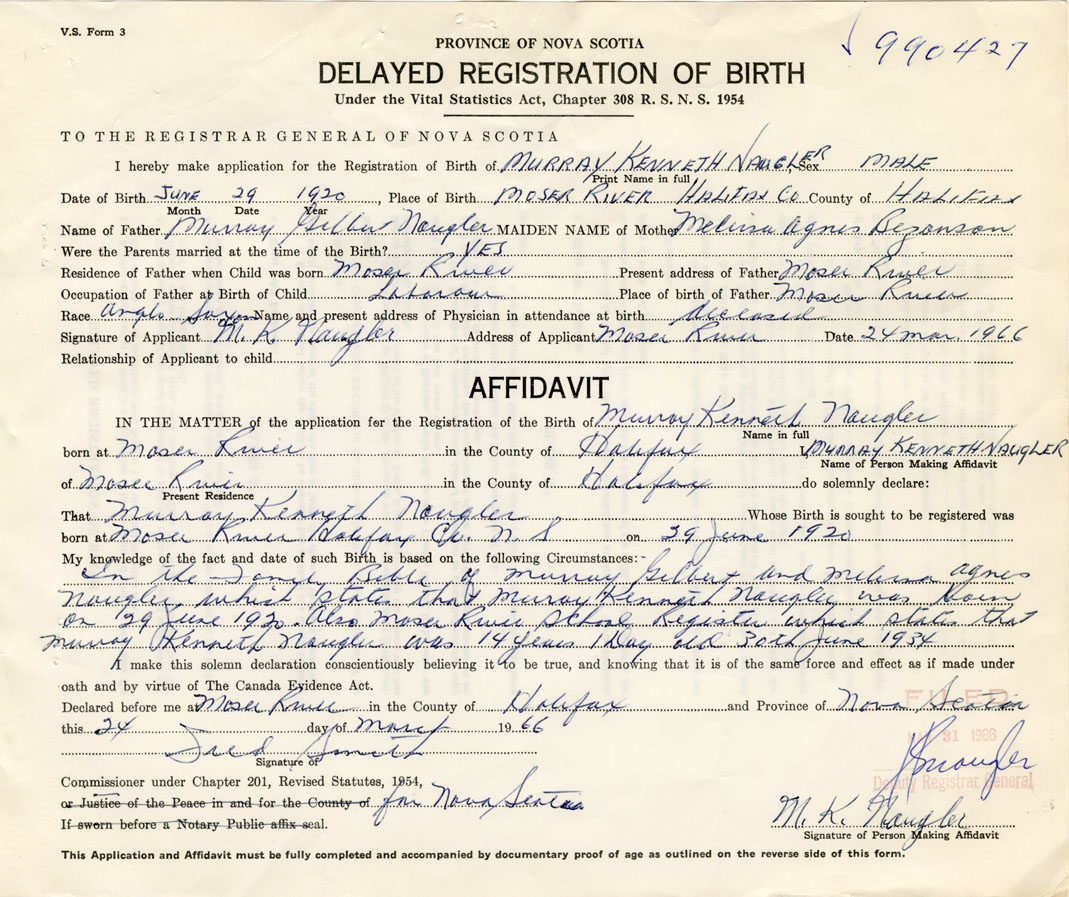 V.S. Form 3
990427
PROVINCE OF NOVA SCOTIA
DELAYED REGISTRATION OF BIRTH
Under the Vital Statistics Act, Chapter 308 R. S. N. S. 1954
TO THE REGISTRAR GENERAL OF NOVA SCOTIA
I hereby make application for the Registration of Birth of MURRAY KENNETH NAUGLER Sex MALE
Print Name in full
Date of Birth JUNE 29 1920, Place of Birth MOSER RIVER HALIFAX CO County of HALIFAX
Month Date Year
Name of Father Murray Gilbert Naugler MAIDEN NAME of Mother Melissa Agnes Bezonson
Were the Parents married at the time of the Birth? YES
Residence of Father when Child was born Moser River Present address of Father Moser River
Occupation of Father at Birth of Child Labourer Place of birth of Father Moser River
Race Anglo Saxon Name and present address of Physician in attendance at birth deceased
Signature of Applicant M. K. Naugler Address of Applicant Moser River Date 24 Mar. 1966
Relationship of Applicant to child
AFFIDAVIT
IN THE MATTER of the application for the Registration of the Birth of Murray Kenneth Naugler
Name in full
born at Moser River in the County of Halifax MURRAY KENNETH NAUGLER
Name of Person Making Affidavit
of Moser River in the County of Halifax do solemnly declare:
Present Residence
That Murray Kenneth Naugler Whose Birth is sought to be registered was
born at Moser River Halifax Co. N. S on 29 June 1920
My knowledge of the fact and date of such Birth is based on the following Circumstances:-
In the Family Bible of Murray Gilbert and Melissa Agnes
Naugler, which states that Murray Kenneth Naugler was born
on 29 June 1920. Also Moser River School Register which states that
Murray Kenneth Naugler was 14 years 1 Day old 30th June 1934
I make this solemn declaration conscientiously believing it to be true, and knowing that it is of the same force and effect as if made under
oath and by virtue of The Canada Evidence Act.
Declared before me at Moser River in the County of Halifax and Province of Nova Scotia
FILED
this 24 day of March 1966
31 1966
Fred Smith
Signature of
Commissioner under Chapter 201, Revised Statutes, 1954,
Deputy Registrar General
or Justice of the Peace in and for the County of for Nova Scotia
If sworn before a Notary Public affix seal.
M. K. Naugler
Signature of Person Making Affidavit
This Application and Affidavit must be fully completed and accompanied by documentary proof of age as outlined on the reverse side of this form.